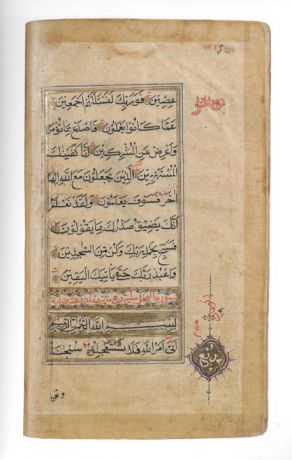 عضين فوربك لنسئلنهم اجمعين
عما كانوا يعملون فاصدع بما تؤمر
واعرض عن المشركين انا كفينك
المستهزئين الذين يجعلون مع الله الها
اخر فسوف يعلمون ولقد نعلم
انك يضيق صدرك بما يقولون
فسبح بحمد ربك وكن من السجدين
واعبد ربك حتى ياتيك اليقين
سورة النحل
بسم الله الرحمن الرحيم
اتى امر الله فلا تستعجلوه سبحنه
وتعا